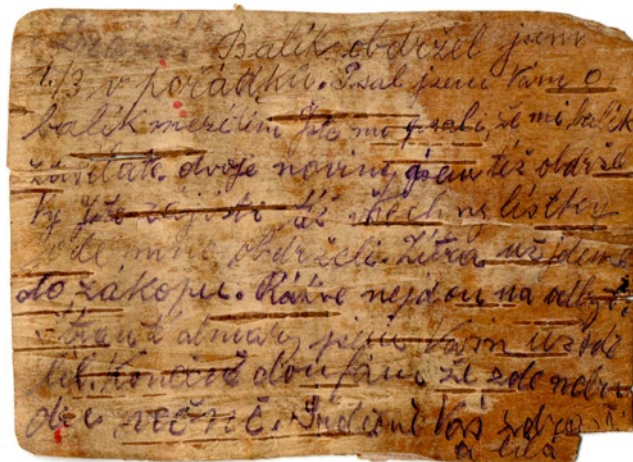 Drazí! Balík obdržel jsem
1./3 v pořádku. Psal jsem Vám o
balík mezitím Jste mi psali, že mi balík
zasíláte. dvoje noviny jsem též obdržel
Vy Jste zajisté též všechny lístky
ode mne obdrželi. Zítra už jdeme
do zákopu. Ráže nejdou na odbyt,
jsem Vám už
Konečně doufám že zde nebu
du věčně. Srdečně Vás zdraví
a líbá